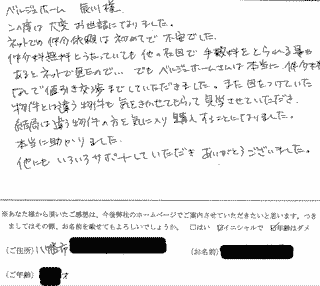 ベルジュホーム 辰川様、
この度は大変お世話になりました。
ネットでの仲介依頼は初めてで不安でした。
仲介料無料とうたっていても他の名目で手数料をとられる事も
あるとネットで見たので… でもベルジュホームさんは本当に仲介料
なしで値引き交渉までしていただきました。また目をつけていた
物件とは違う物件も気をきかせてもらって見学させていただき、
結局は違う物件の方を気に入り購入することになりました。
本当に助かりました。
他にもいろいろサポートしていただきありがとうございました。
※あなた様から頂いたご感想は、今後弊社のホームページでご案内させていただきたいと思います。つき
ましてはその際、お名前を載せてもよろしいでしょうか。 □はい ☑イニシャルで ☑年齢はダメ
(ご住所) 八幡市 (お名前)
(ご年齢) 才